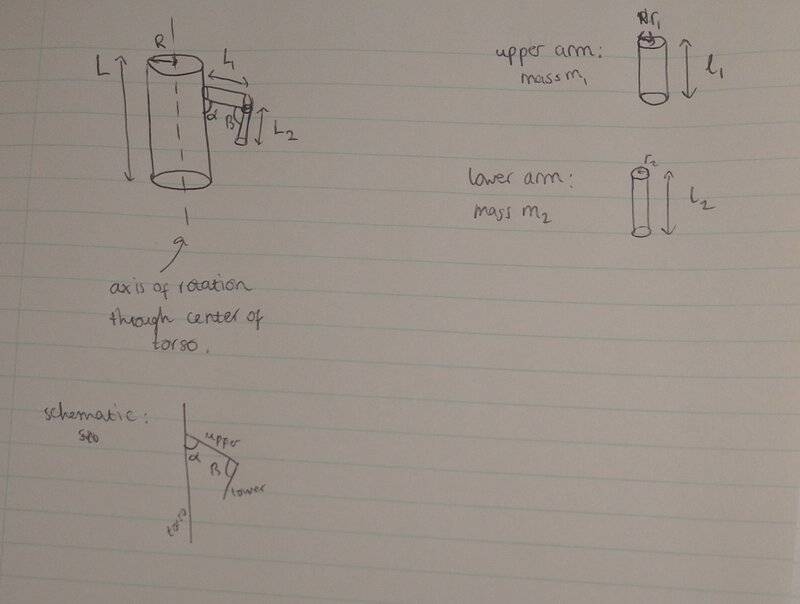 R
L
L₁
α
B
L₂
axis of rotation
through center of
torso.
upper arm:
mass m₁
r₁
l₁
lower arm:
mass m₂
r₂
l₂
schematic:
upper
α
B
lower
torso